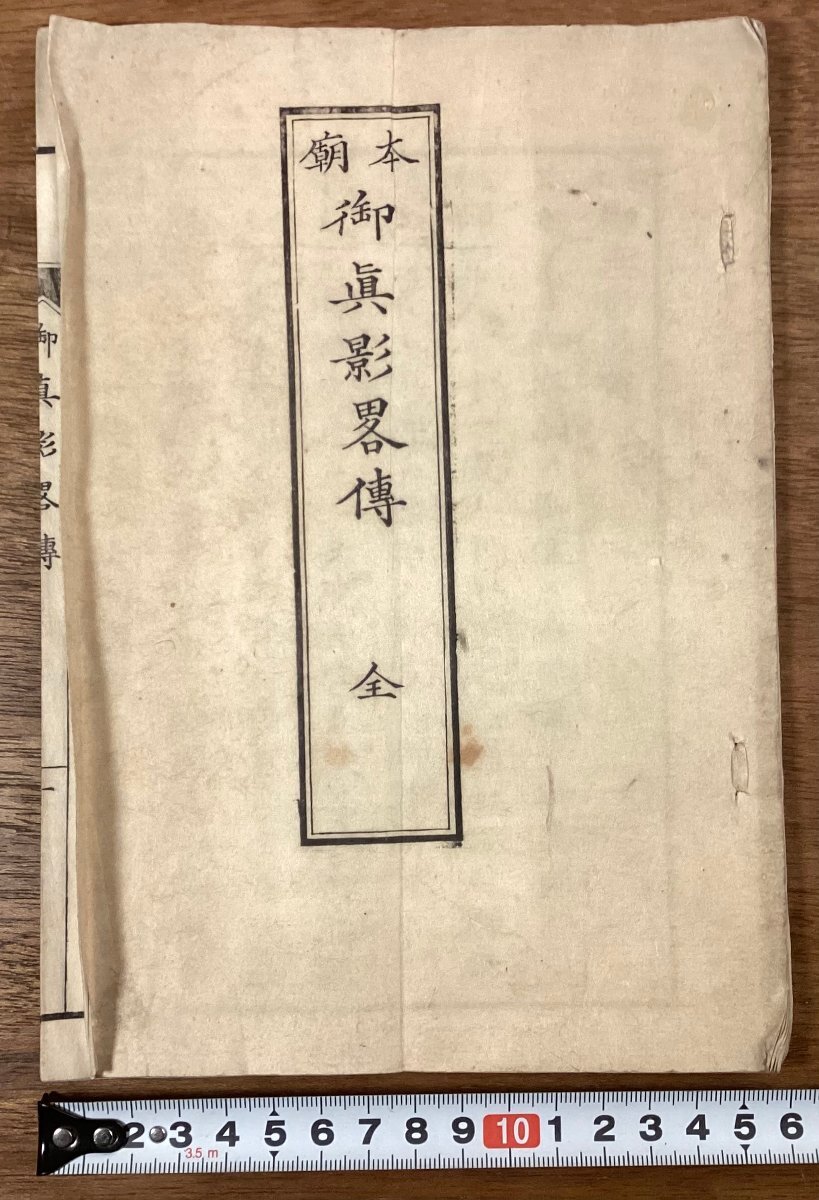 本廟
御眞影畧傳
全
御眞影畧傳
一
2 3 4 5 6 7 8 9 10 1 2 3 4 5 6
3.5 m